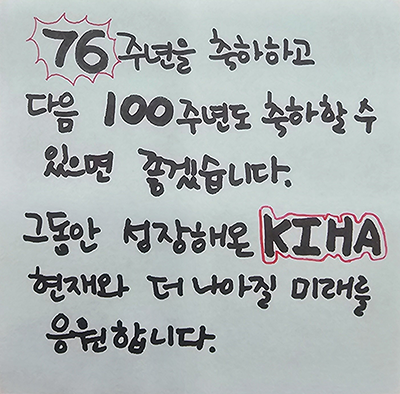 76주년을 축하하고
다음 100주년도 축하할 수
있으면 좋겠습니다.
그동안 성장해온 KIHA
현재와 더 나아질 미래를
응원합니다.